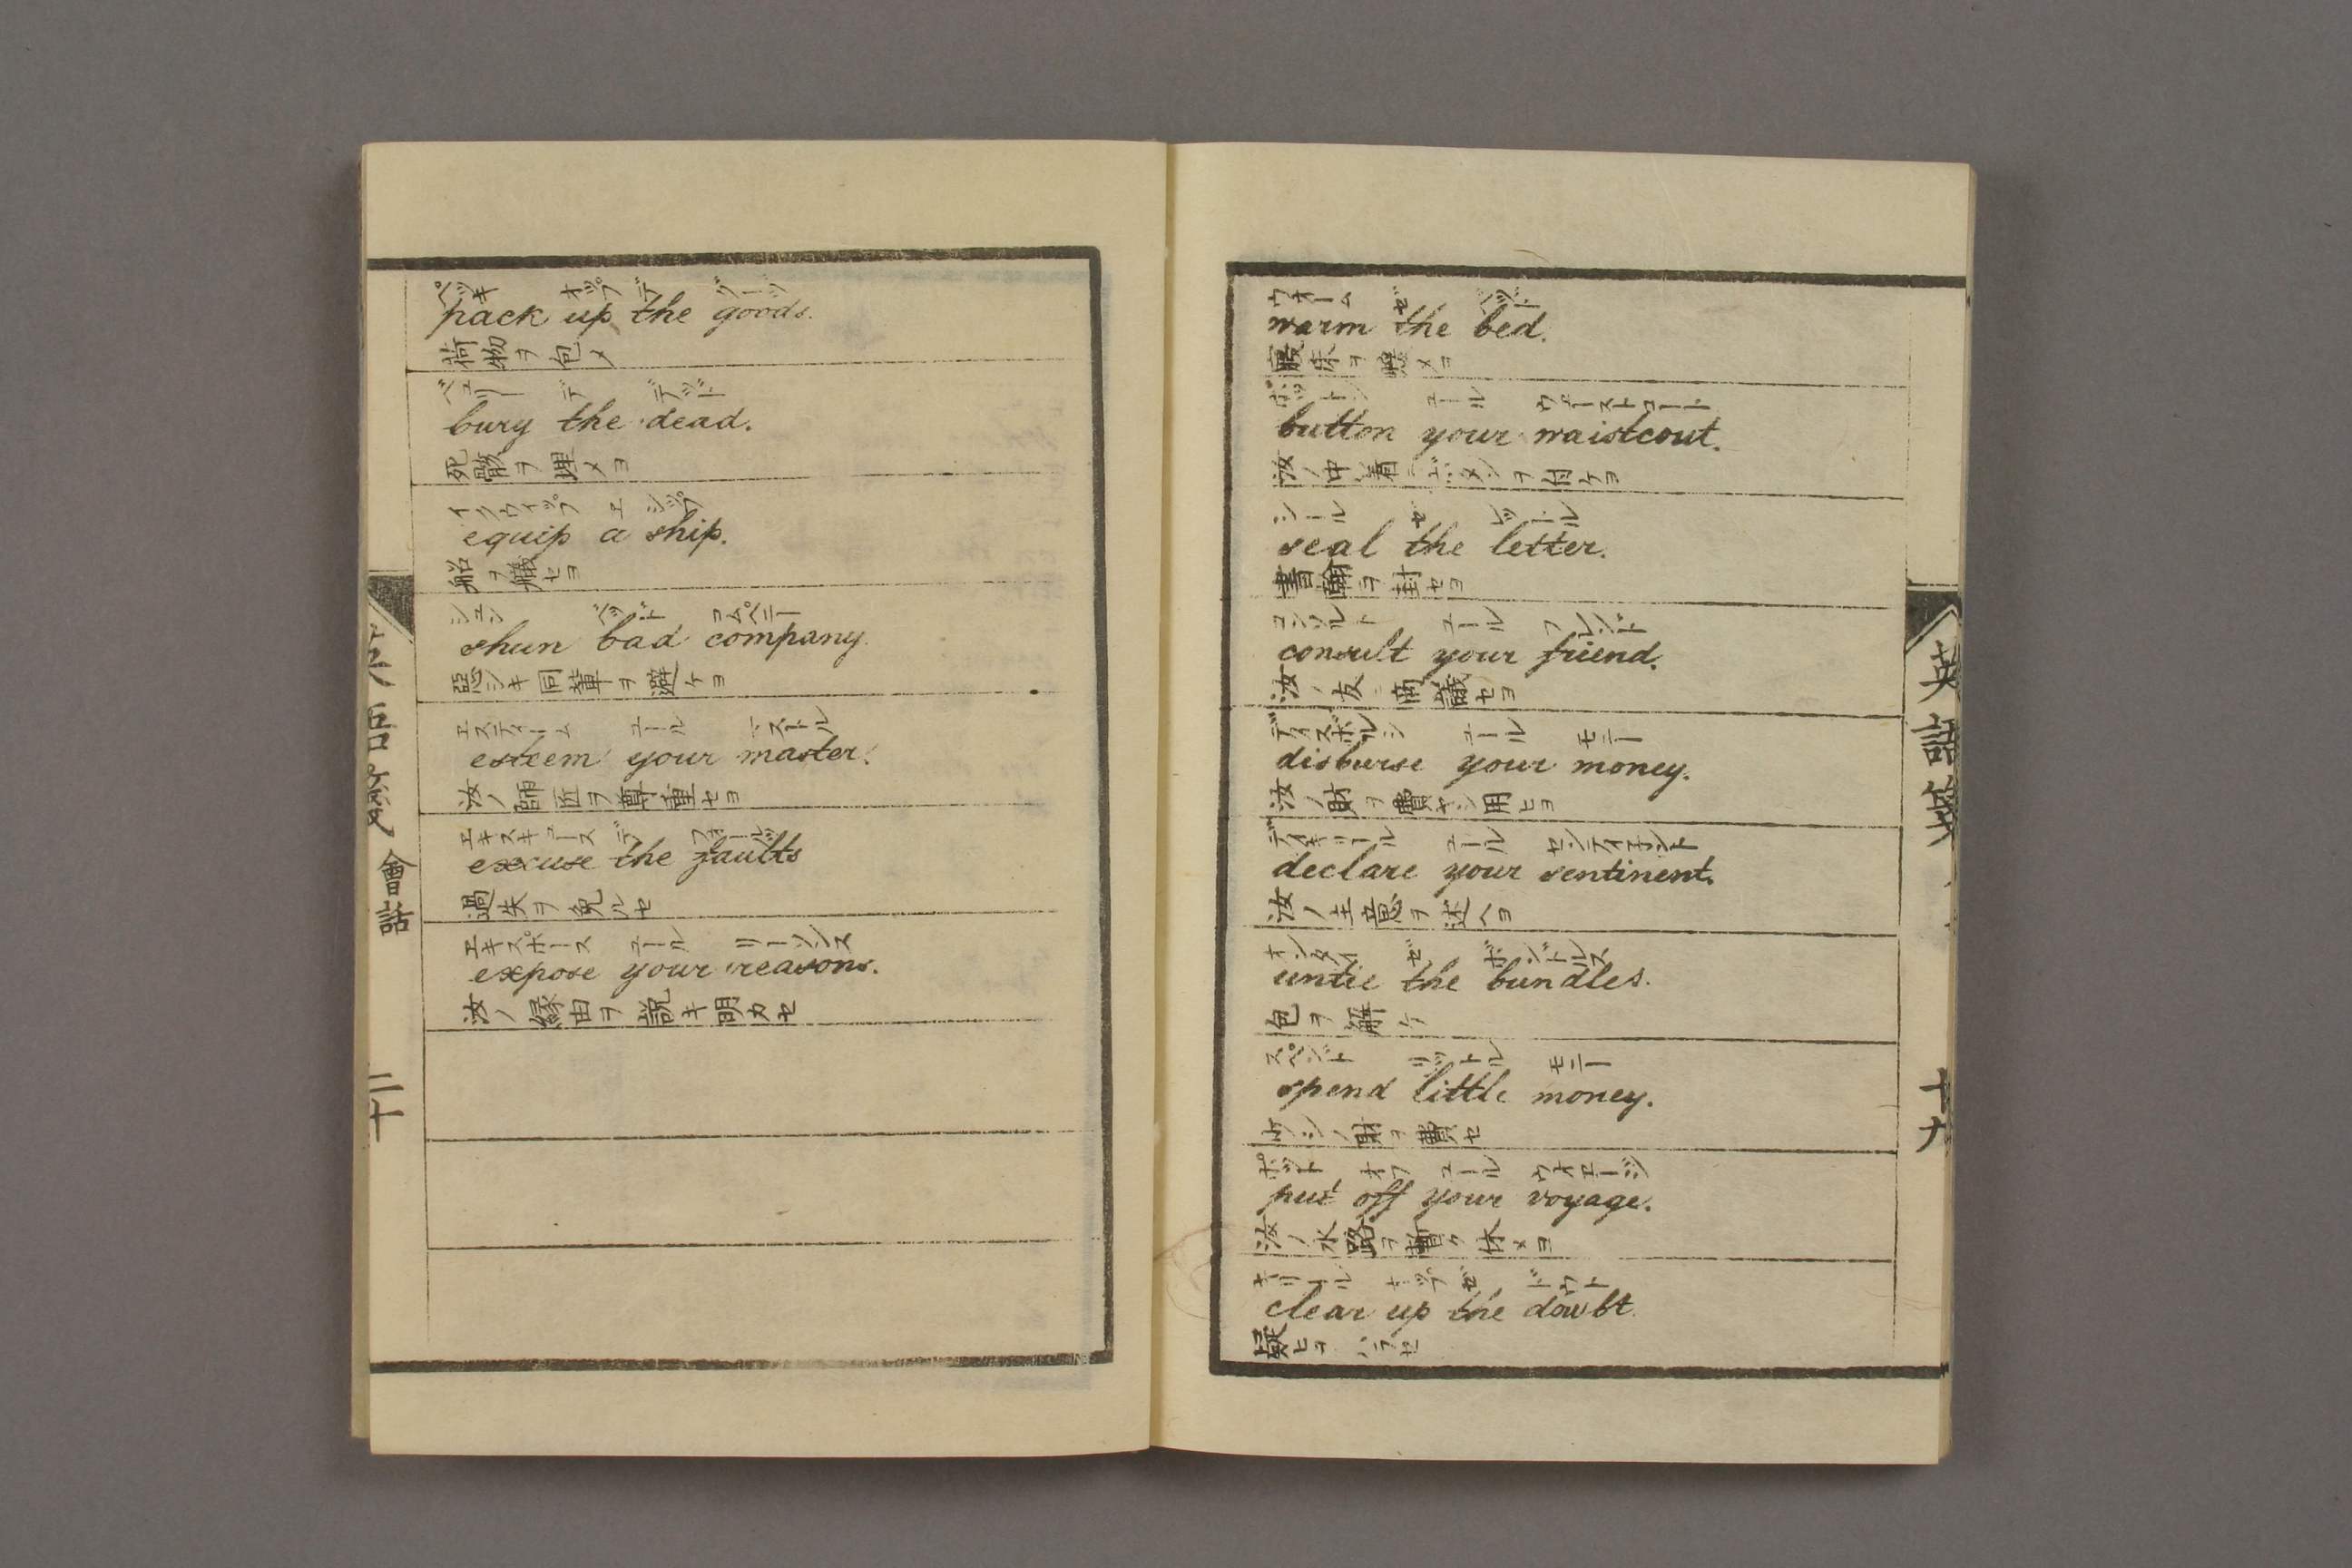 ペッキ オップ デ グーツ
pack up the goods.
荷物ヲ包メ
ベュリー デ デッド
bury the dead.
死骸ヲ埋メヨ
イクウィップ エ シップ
equip a ship.
船ヲ艤セヨ
シュン ベッド コムペニー
shun bad company.
惡シキ同輩ヲ避ケヨ
エスティーム ユール マストル
esteem your master.
汝ノ師匠ヲ尊重セヨ
エキスキュース デ フォールツ
excuse the faults
過失ヲ免ルセ
エキスポース ユール リーソンス
expose your reasons.
汝ノ縁由ヲ説キ明カセ
會話
二十
ウォーム ゼ ベッド
warm the bed.
寢床ヲ煖メヨ
ボットン ユール ウェーストコート
button your waistcout.
汝ノ中着ニボタンヲ付ケヨ
シール ゼ レットル
seal the letter.
書翰ヲ封セヨ
コンソルト ユール フレンド
consult your friend.
汝ノ友ニ商議セヨ
ディスボルシ ユール モニー
disburse your money.
汝ノ財ヲ費ヤシ用ヒヨ
ユール
declare your sentinent.
汝ノ主意ヲ述ヘヨ
オンタイ ゼ ボンドルス
untie the bundles.
包ヲ解ケ
スペンド リットル モニー
spend little money.
少シノ財ヲ費セ
ポット オフ ユール ウォエージ
put off your voyage.
汝ノ水路ヲ暫ク休メヨ
キリール オップ ゼ ドウト
clear up the doubt.
疑ヒヲハラセ
英語
十九